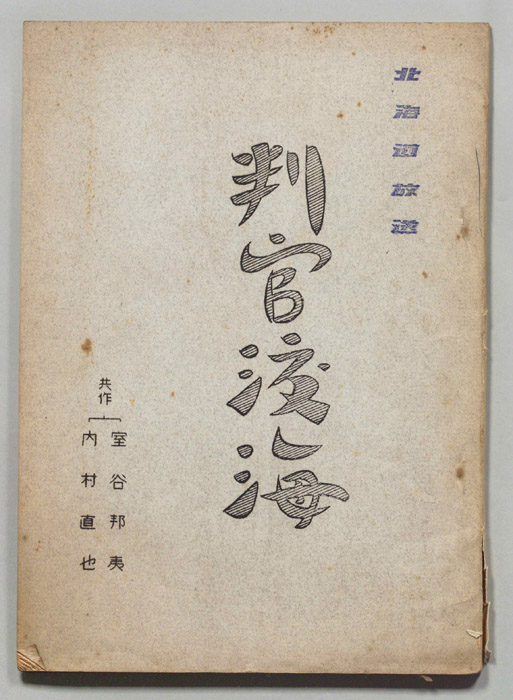 北海道放送
判官渡海
共作
室谷邦夷
内村直也